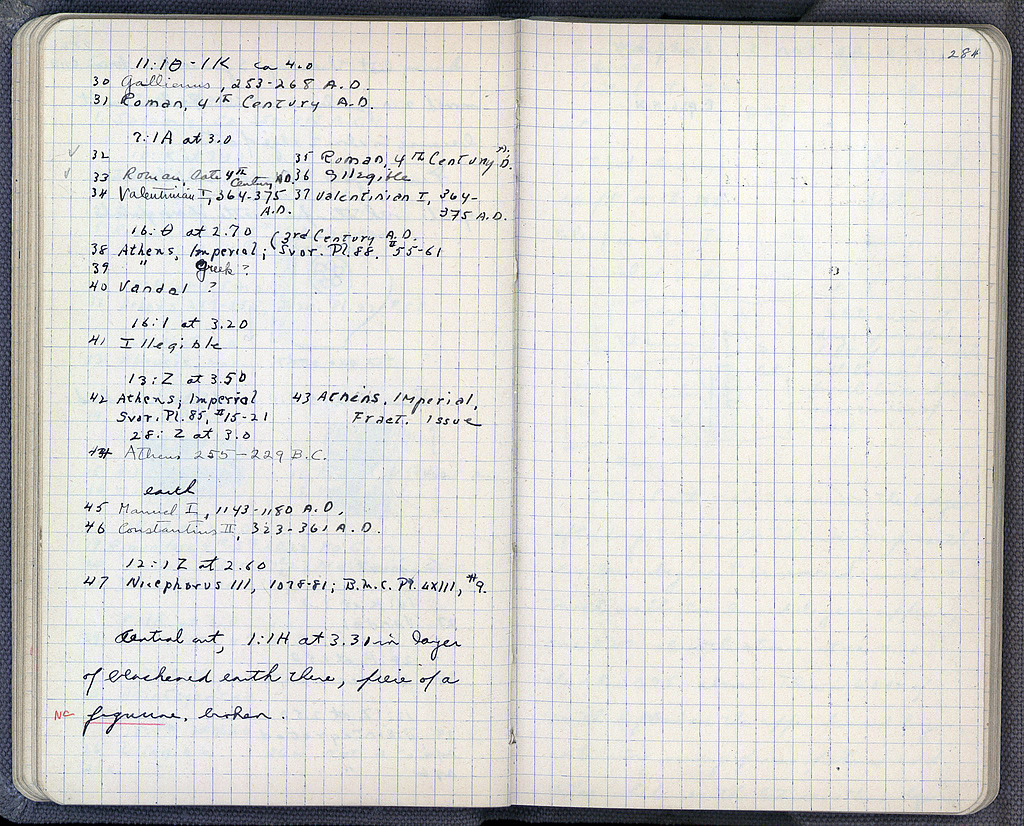 284
11:1Θ - 1K ca 4.0
30 Gallienus, 253-268 A.D.
31 Roman, 4th Century A.D.
7:1A at 3.0
32
33 Roman, late 4th Century A.D.
34 Valentinian I, 364-375 A.D.
35 Roman, 4th Century A.D.
36 Illegible
37 Valentinian I, 364-
375 A.D.
16:Θ at 2.70
(3rd Century A.D.
38 Athens, Imperial; Svor. Pl. 88, #55-61
39 " Greek?
40 Vandal ?
16:I at 3.20
41 Illegible
13:Z at 3.50
42 Athens, Imperial
Svor. Pl. 85, #15-21
43 Athens, Imperial,
Fract. issue
28:Z at 3.0
44 Athens 255-229 B.C.
earth
45 Manuel I, 1143-1180 A.D.
46 Constantius II, 323-361 A.D.
12:1Z at 2.60
47 Nicephorus III, 1078-81; B.M.C. Pl. LXIII, #9.
Central cut, 1:1H at 3.31 in layer
of blackened earth there, piece of a
NC figurine, broken.